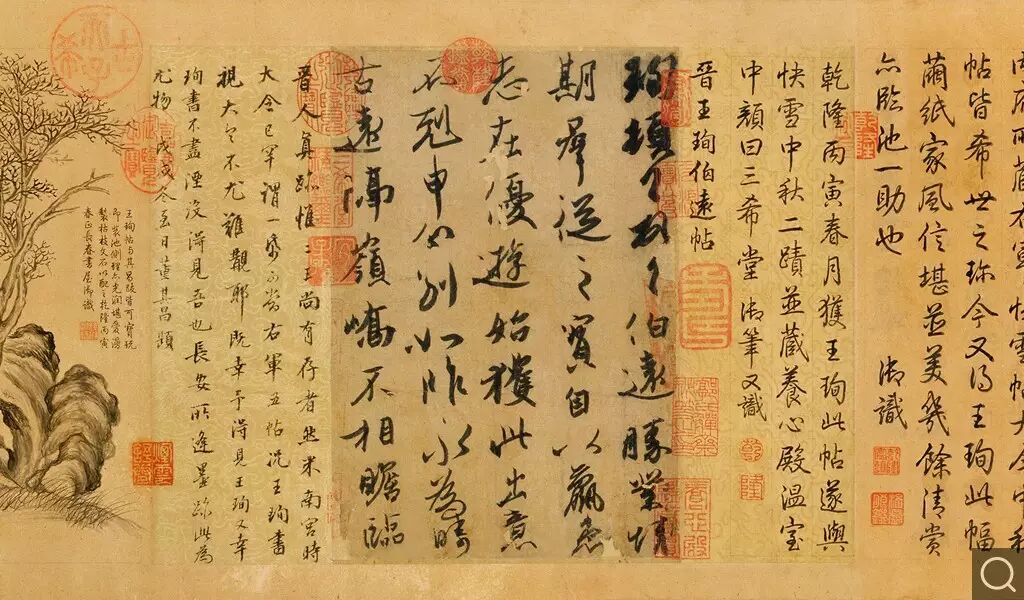 内府所藏右軍快雪帖大令中秋
帖皆希世之珍今又得王珣此幅
繭紙家風信堪並美幾餘清賞
亦臨池一助也 御識
乾隆丙寅春月獲王珣此帖遂與
快雪中秋二蹟並藏養心殿溫室
中顏曰三希堂 御筆又識
晉王珣伯遠帖
珣頓首頓首伯遠勝業情
期群從之寶自以羸患
志在優遊始獲此出意
不剋申分別如昨永為疇
古遠隔嶺嶠不相瞻臨
晉人真跡惟二王尚有存者然米南宮時
大令已罕謂一紙可當右軍五帖況王珣書
視大令不尤難覯耶既幸予得見王珣又幸
珣書不盡湮沒得見吾也長安所逢墨跡此為
尤物戊戌冬至日董其昌題
王珣帖與其昌跋皆可寶玩
即裝池側理亦光潤堪愛漫
製枯枝文石以配之乾隆丙寅
春正長春書屋御識